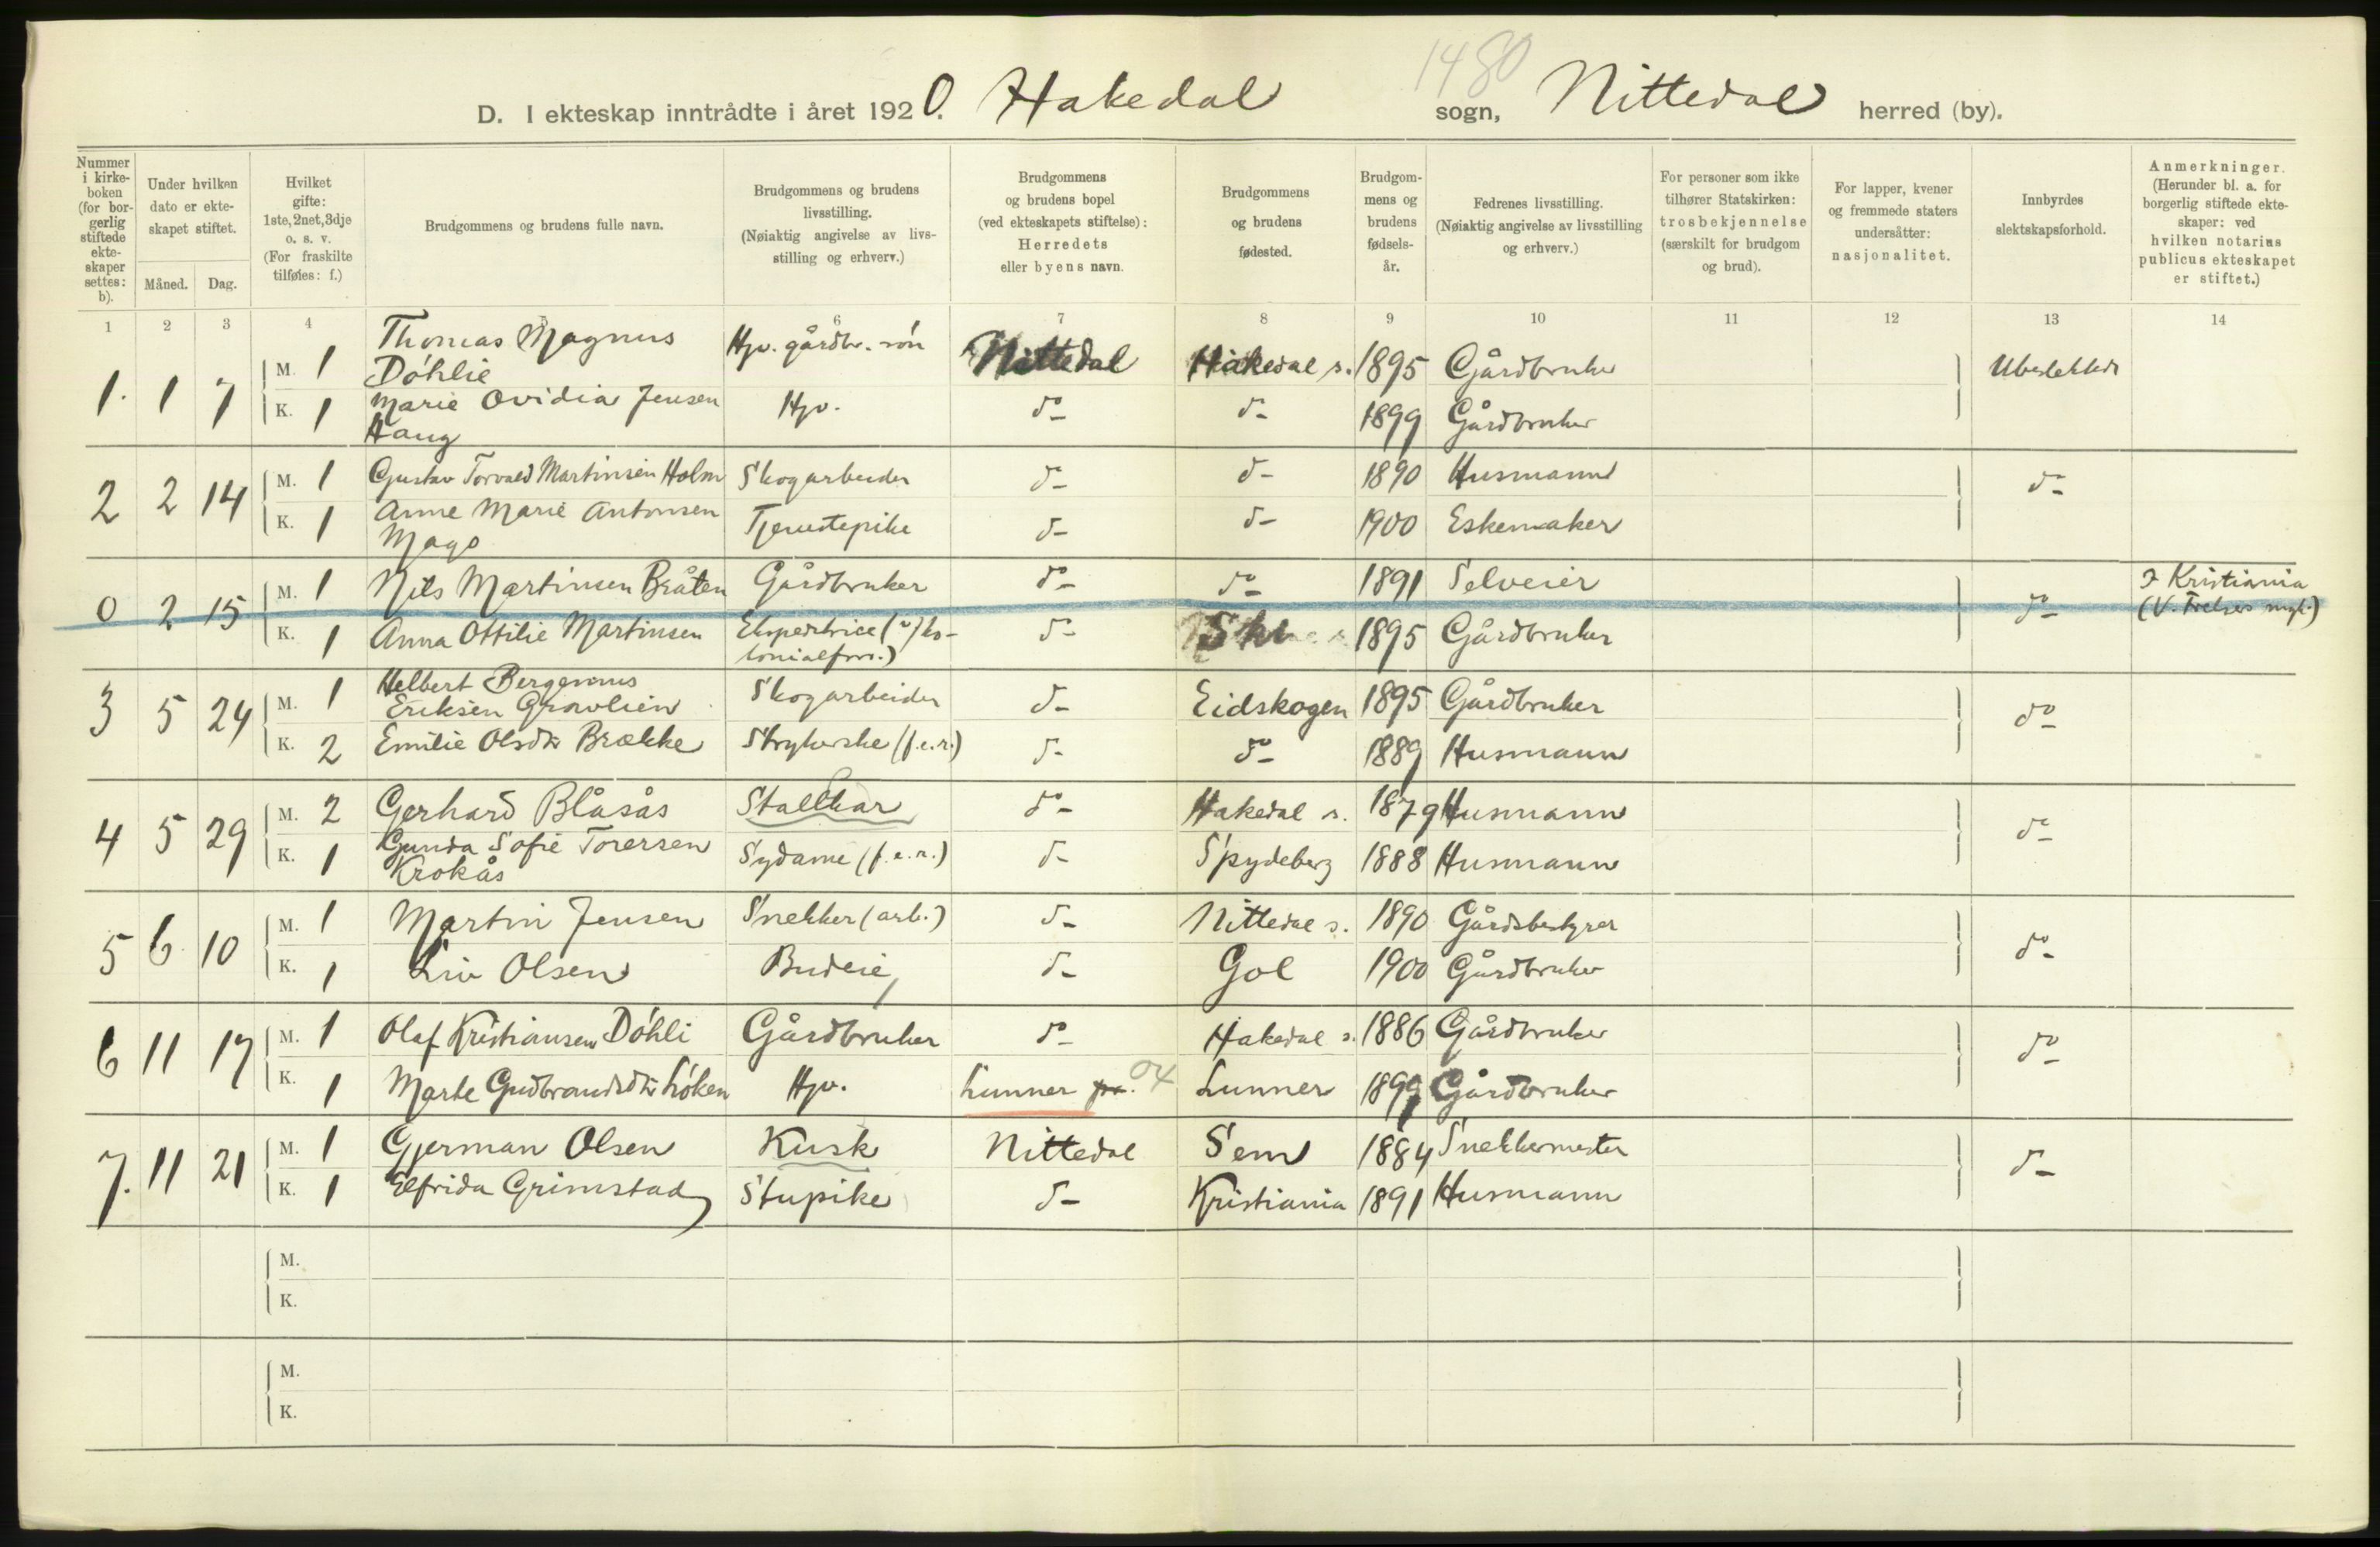 1480
D. I ekteskap inntrådte i året 1920. Hakedal sogn, Nittedal herred (by).
Nummer i kirkeboken (for borgerlig stiftede ekteskaper settes: b).
Under hvilken dato er ekteskapet stiftet.
Måned. Dag.
Hvilket gifte: 1ste, 2net, 3dje o. s. v. (For fraskilte tilføies: f.)
Brudgommens og brudens fulle navn.
Brudgommens og brudens livsstilling. (Nøiaktig angivelse av livsstilling og erhverv.)
Brudgommens og brudens bopel (ved ekteskapets stiftelse): Herredets eller byens navn.
Brudgommens og brudens fødested.
Brudgommens og brudens fødselsår.
Fedrenes livsstilling. (Nøiaktig angivelse av livsstilling og erhverv.)
For personer som ikke tilhører Statskirken: trosbekjennelse (særskilt for brudgom og brud).
For lapper, kvener og fremmede staters undersåtter: nasjonalitet.
Innbyrdes slektskapsforhold.
Anmerkninger. (Herunder bl. a. for borgerlig stiftede ekteskaper: ved hvilken notarius publicus ekteskapet er stiftet.)
1 2 3 4 5 6 7 8 9 10 11 12 13 14
1. 1 7 M. 1 Thomas Magnus Døhlie Hjv. gårdbr. søn Nittedal Hakedal s. 1895 Gårdbruker Ubeslektede
K. 1 Marie Ovidia Jensen Haug Hjv. do do 1899 Gårdbruker
2 2 14 M. 1 Gustav Torvald Martinsen Holm Skogarbeider do do 1890 Husmann do
K. 1 Anne Marie Antonsen Mago Tjenestepike do do 1900 Eskemaker
0 2 15 M. 1 Nils Martinsen Bråten Gårdbruker do do 1891 Selveier do I Kristiania (V. Frelsers mgh.)
K. 1 Anna Ottilie Martinsen Ekspeditrice (i kolonialforr.) do 1895 Gårdbruker
3 5 24 M. 1 Helbert Bergerinus Eriksen Gravlien Skogarbeider do Eidskogen 1895 Gårdbruker do
K. 2 Emilie Olsdtr Brække Strykerske (f.e.r.) do do 1889 Husmann
4 5 29 M. 2 Gerhard Blåsås Stallkar do Hakedal s. 1879 Husmann do
K. 1 Gunda Sofie Torersen Krokås Sydame (f.e.r.) do Spydeberg 1888 Husmann
5 6 10 M. 1 Martin Jensen Snekker (arb.) do Nittedal s. 1890 Gårdsbestyrer do
K. 1 Liv Olsen Budeie do Gol 1900 Gårdbruker
6 11 17 M. 1 Olaf Kristiansen Døhli Gårdbruker do Hakedal s. 1886 Gårdbruker do
K. 1 Marte Gudbrandsdtr Løken Hjv. Lunner pr. 04 Lunner 1899 Gårdbruker
7. 11 21 M. 1 Gjerman Olsen Kusk Nittedal Sem 1884 Snekkermester do
K. 1 Elfrida Grimstad Stupike do Kristiania 1891 Husmann
M.
K.
M.
K.